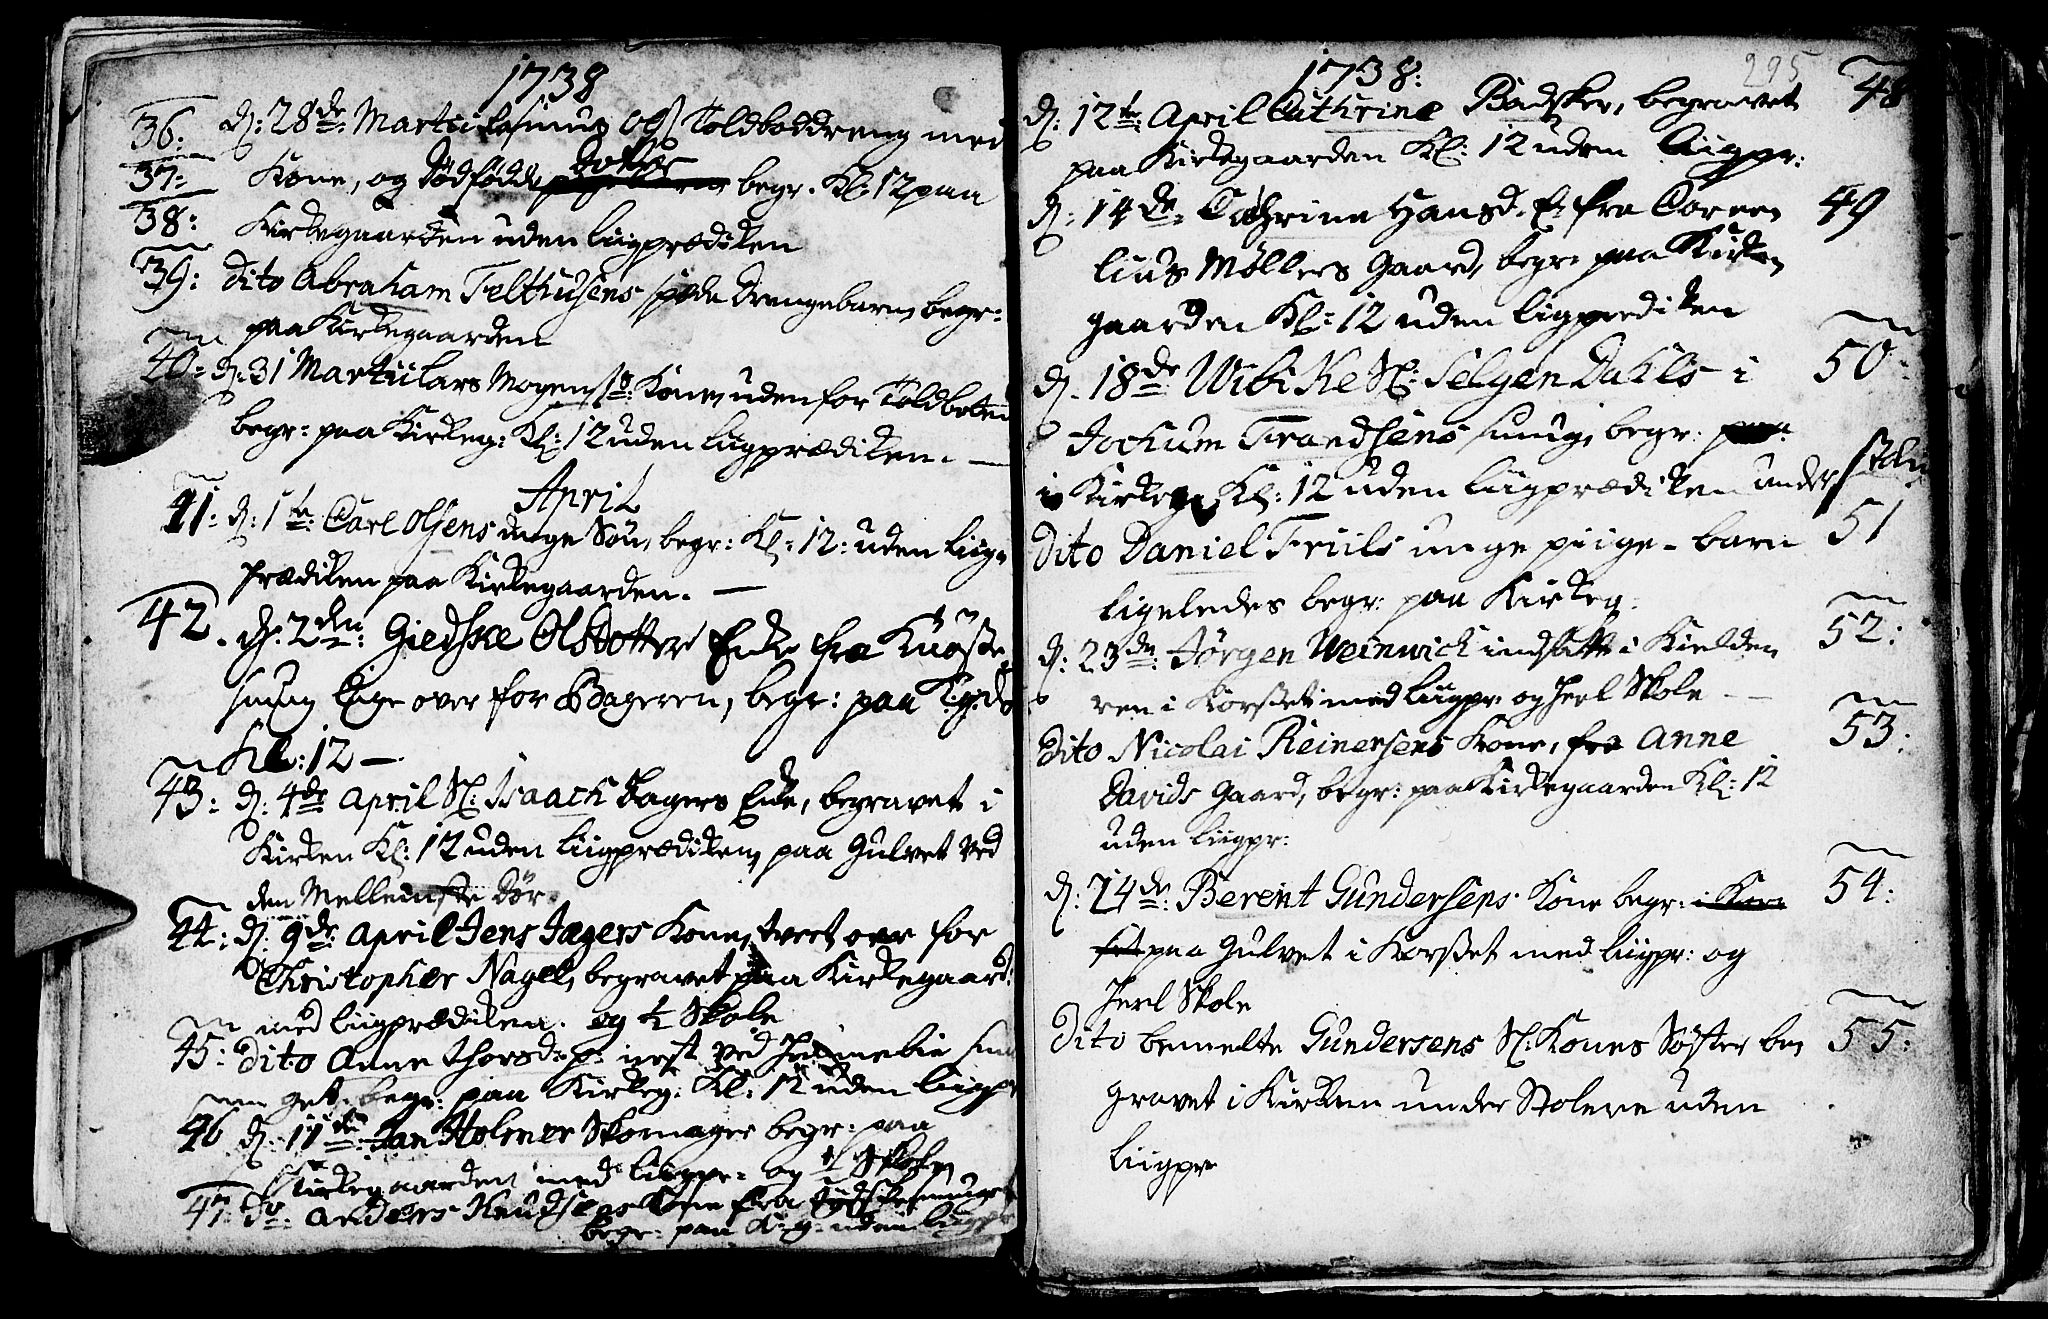 1738
36. d: 28de: Martii Rasmus Ols Toldboddreng med
37: Kone, og dødfødde dotter begr. Kl: 12 paa
38: Kirkegaarden uden liigprædiken
39: Dito Abraham Felthusens spæde Drengebarn, begr:
paa Kirkegaarden
40: d: 31 Martii Lars Mogens: Kone, uden for Toldboten
begr: paa Kirkeg: Kl: 12 uden liigprædiken. —
April
41: d: 1te: Carl Olsens unge Søn, begr: Kl: 12: uden liig-
prædiken paa Kirkegaarden. —
42. d: 2den: Giedske Olsdotter Enke fra
smug lige over for Bageren, begr: paa
Kl: 12 —
43: d: 4de April Sl: Isaach Jagers Enke, begravet i
Kirken Kl: 12 uden liigprædiken, paa Gulvet ved
den Mellemste Dør
44: d: 9de April Jens Jægers Kone, tvert over for
Christopher Nagel, begravet paa Kirkegaard:
med liigprædiken. og ½ Skole
45: Dito Anne Thorsd: p: inest ved
get. begr: paa Kirkeg: Kl: 12 uden liigpr
46 d: 11te: Jan Holmer Skomager begr: paa
Kirkegaarden med liigpr: og ½ Skole
47: do: Anders Knudsens Kone fra
begr: paa K: g: uden liigpr
295
1738:
d: 12te: April Cathrine Badsker, begravet 48
paa Kirkegaarden Kl: 12 uden liigpr:
d: 14de: Cathrine Hansd. E: fra Corne- 49
lius Møllers Gaard, begr: paa Kirke-
gaarden Kl: 12 uden ligprediken
d. 18de: Wibike Sl: Selgen Dahls i 50:
Jochum Frandsens smug, begr: paa
i Kirken Kl: 12 uden liigprædiken under stolen
Dito Daniel Friils unge piige-barn 51
ligeledes begr: paa Kirkeg:
d: 23de: Jørgen Weinwick indsatt i Kielde- 52:
ren i Korsset med liigpr og heel Skole —
Dito Nicolai Reinersens Kone, fra Anne 53:
Davids Gaard, begr: paa Kirkegaarden Kl: 12
uden liigpr:
d: 24de: Berent Gundersens Kone begr: i Kor- 54:
set paa Gulvet i Korsset med liigpr: og
heel Skole
Dito bemelte Gundersens Sl: Kones Søster be- 55:
gravet i Kirken under Stolene uden
liigpr